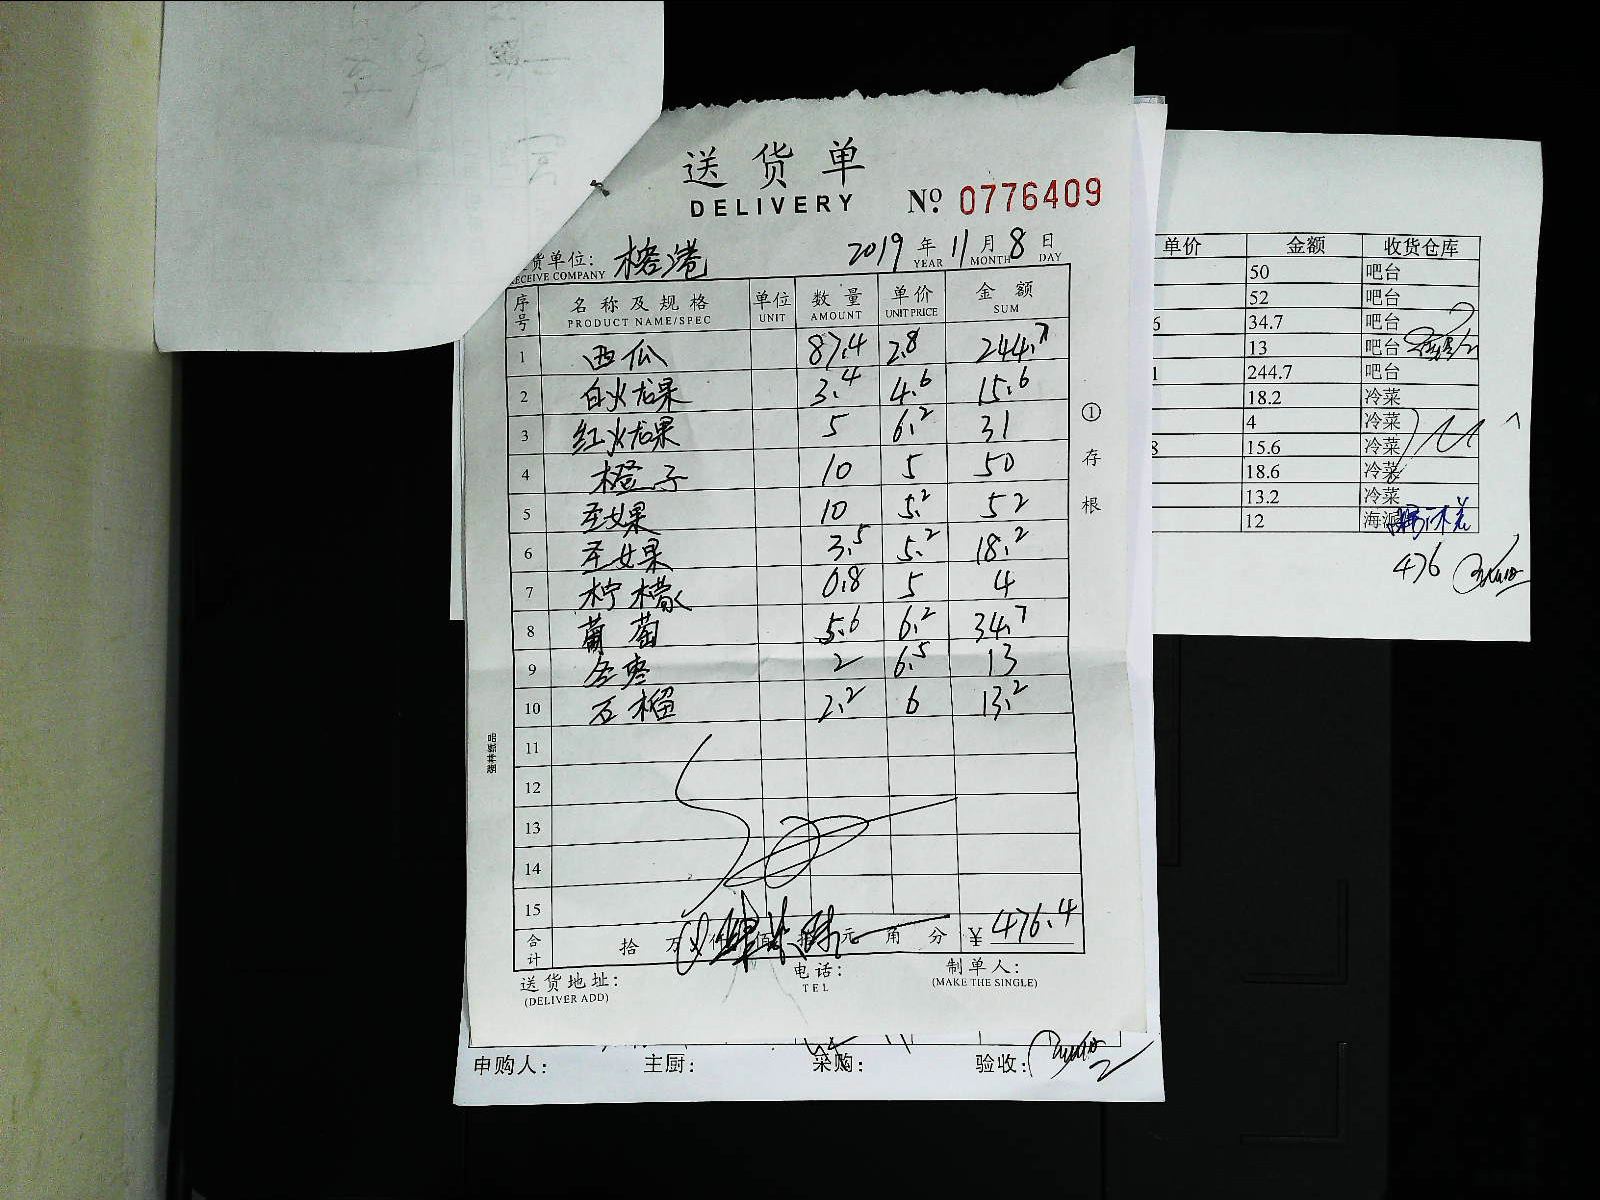 送货单
DELIVERY № 0776409
货单位: 榕港 2019 年 11 月 8 日
RECEIVE COMPANY YEAR MONTH DAY
序号 名称及规格 单位 数量 单价 金额
PRODUCT NAME/SPEC UNIT AMOUNT UNIT PRICE SUM
1 西瓜 87.4 2.8 244.7
2 白火龙果 3.4 4.6 15.6
3 红火龙果 5 6.2 31
4 橙子 10 5 50
5 圣女果 10 5.2 52
6 圣女果 3.5 5.2 18.2
7 柠檬 0.8 5 4
8 葡萄 5.6 6.2 34.7
9 冬枣 2 6.5 13
10 石榴 2.2 6 13.2
11
12
13
14
15
合计 拾 万 仟 肆 佰 柒 拾 陆 元 角 分 ¥ 476.4
送货地址: 电话: 制单人:
(DELIVER ADD) TEL (MAKE THE SINGLE)
① 存根
申购人: 主厨: 采购: 验收:
单价 金额 收货仓库
50 吧台
52 吧台
6 34.7 吧台
13 吧台
1 244.7 吧台
18.2 冷菜
4 冷菜
8 15.6 冷菜
18.6 冷菜
13.2 冷菜
12 海派
476